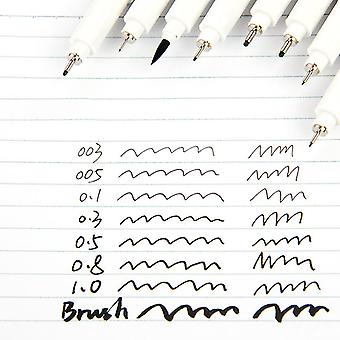 003
005
0.1
0.3
0.5
0.8
1.0
Brush